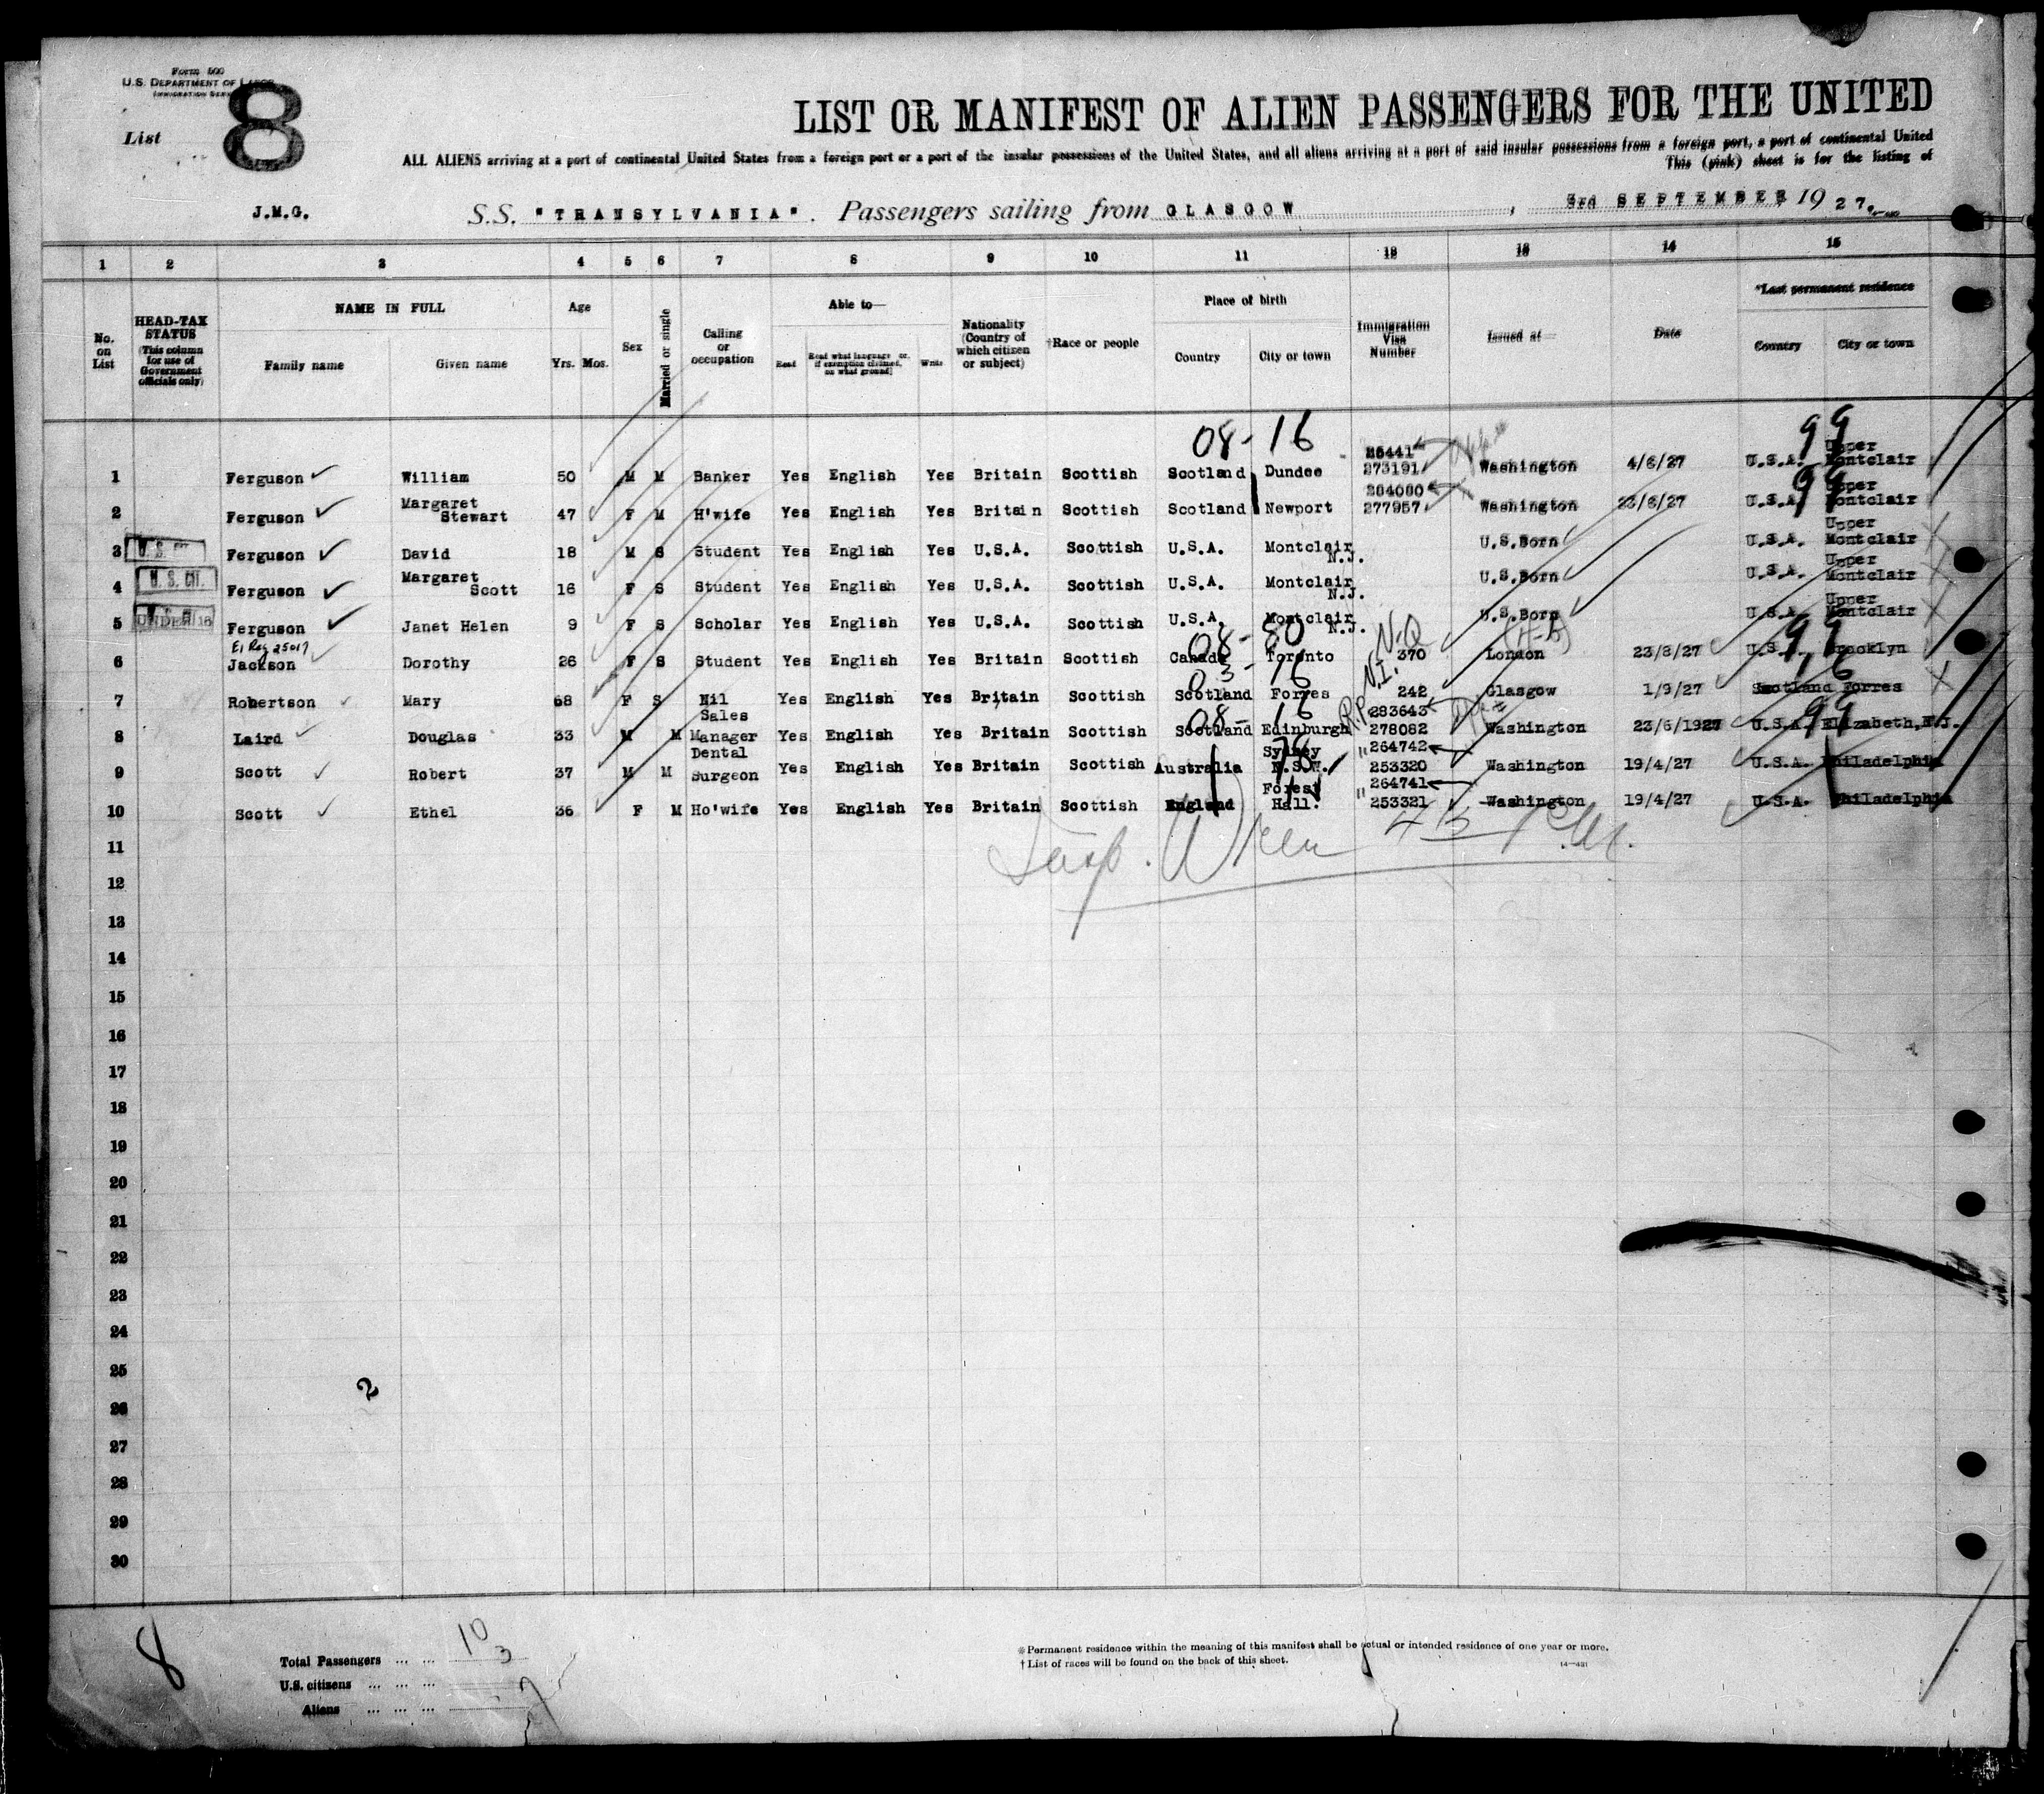 Form 500
U.S. DEPARTMENT OF LABOR
IMMIGRATION SERVICE
List 8
LIST OR MANIFEST OF ALIEN PASSENGERS FOR THE UNITED
ALL ALIENS arriving at a port of continental United States from a foreign port or a port of the insular possessions of the United States, and all aliens arriving at a port of said insular possessions from a foreign port, a port of continental United
This (pink) sheet is for the listing of
J.M.G. S.S. "TRANSYLVANIA". Passengers sailing from GLASGOW, 3rd SEPTEMBER, 1927.
1 2 3 4 5 6 7 8 9 10 11 12 13 14 15
No. on List
HEAD-TAX STATUS (This column for use of Government officials only)
NAME IN FULL
Family name Given name
Age
Yrs. Mos.
Sex
Married or single
Calling or occupation
Able to—
Read Read what language or, if exemption claimed, on what ground Write
Nationality (Country of which citizen or subject)
†Race or people
Place of birth
Country City or town
Immigration Visa Number
Issued at—
Date
*Last permanent residence
Country City or town
08-16 99
1 Ferguson William 50 M M Banker Yes English Yes Britain Scottish Scotland Dundee 273191 Washington 4/6/27 U.S.A. Upper Montclair
99
2 Ferguson Margaret Stewart 47 F M H'wife Yes English Yes Britain Scottish Scotland Newport 277957 Washington 23/6/27 U.S.A. Upper Montclair
3 U.S. CIT. Ferguson David 18 M S Student Yes English Yes U.S.A. Scottish U.S.A. Montclair N.J. U.S.Born U.S.A. Upper Montclair
4 U.S. CIT. Ferguson Margaret Scott 16 F S Student Yes English Yes U.S.A. Scottish U.S.A. Montclair N.J. U.S.Born U.S.A. Upper Montclair
5 UNDER 16 Ferguson Janet Helen 9 F S Scholar Yes English Yes U.S.A. Scottish U.S.A. Montclair N.J. U.S.Born U.S.A. Upper Montclair
EI Reg 25017 08-80 N.Q 99
6 Jackson Dorothy 26 F S Student Yes English Yes Britain Scottish Canada Toronto 370 London 23/8/27 U.S.A. Brooklyn
3-16 V.I. 16
7 Robertson Mary 68 F S Nil Yes English Yes Britain Scottish Scotland Forres 242 Glasgow 1/9/27 Scotland Forres
08-16 P.P. 283643 99
8 Laird Douglas 33 M M Sales Manager Yes English Yes Britain Scottish Scotland Edinburgh 278082 Washington 23/6/1927 U.S.A. Elizabeth, N.J.
" 264742
9 Scott Robert 37 M M Dental Surgeon Yes English Yes Britain Scottish Australia Sydney N.S.W. 253320 Washington 19/4/27 U.S.A. Philadelphia
" 264741
10 Scott Ethel 36 F M Ho'wife Yes English Yes Britain Scottish England Forest Hall. 253321 Washington 19/4/27 U.S.A. Philadelphia
11
12
13
14
15
16
17
18
19
20
21
22
23
24
25
2
26
27
28
29
30
8
Total Passengers ... ... 10
U.S. citizens ... ... ... 3
Aliens ... ... ... 7
*Permanent residence within the meaning of this manifest shall be actual or intended residence of one year or more.
†List of races will be found on the back of this sheet.